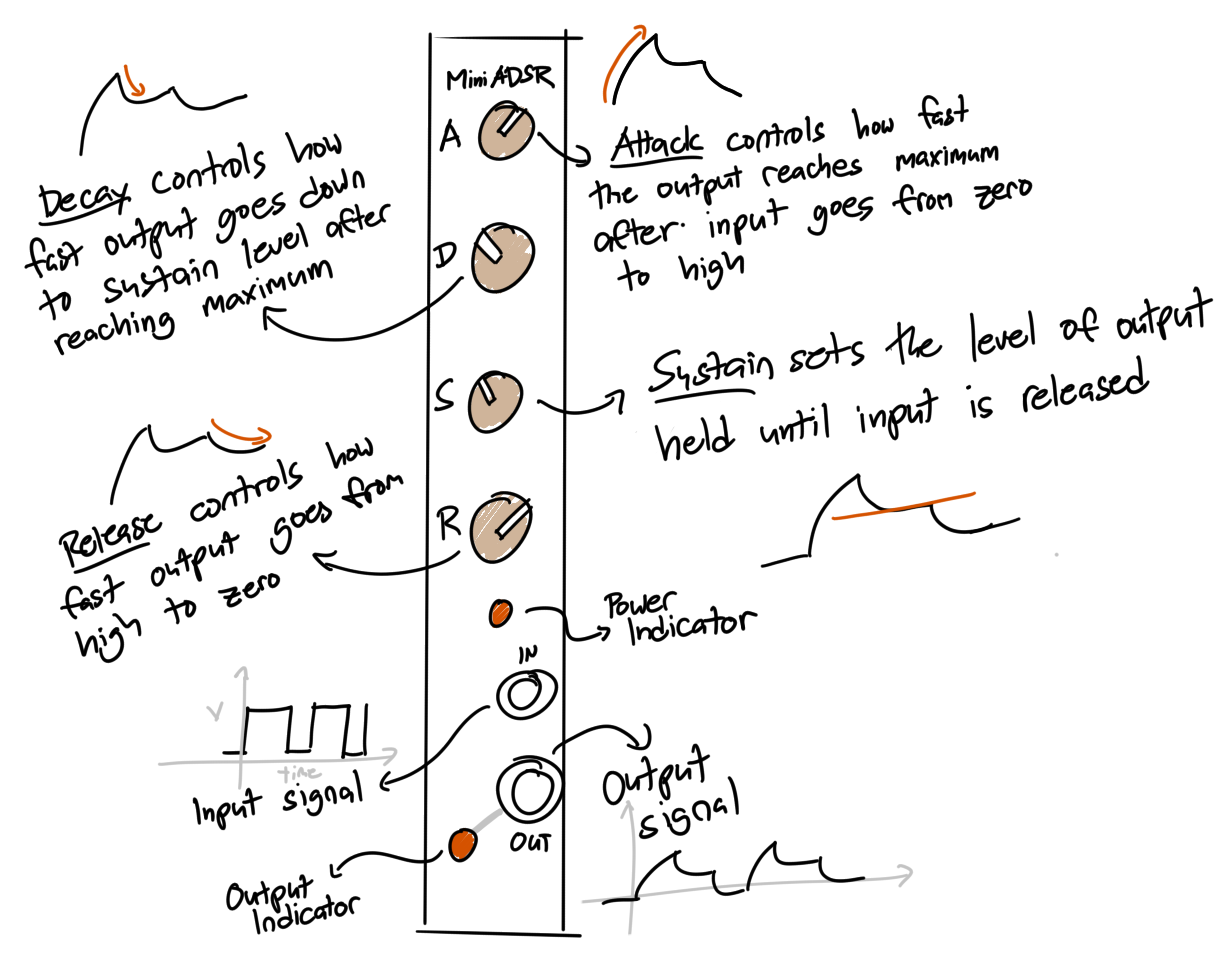 Mini ADSR
A
D
S
R
IN
OUT
Attack controls how fast
the output reaches maximum
after. input goes from zero
to high
Decay controls how
fast output goes down
to sustain level after
reaching maximum
Sustain sets the level of output
held until input is released
Release controls how
fast output goes from
high to zero
Power
Indicator
V
time
Input signal
Output
signal
Output
Indicator